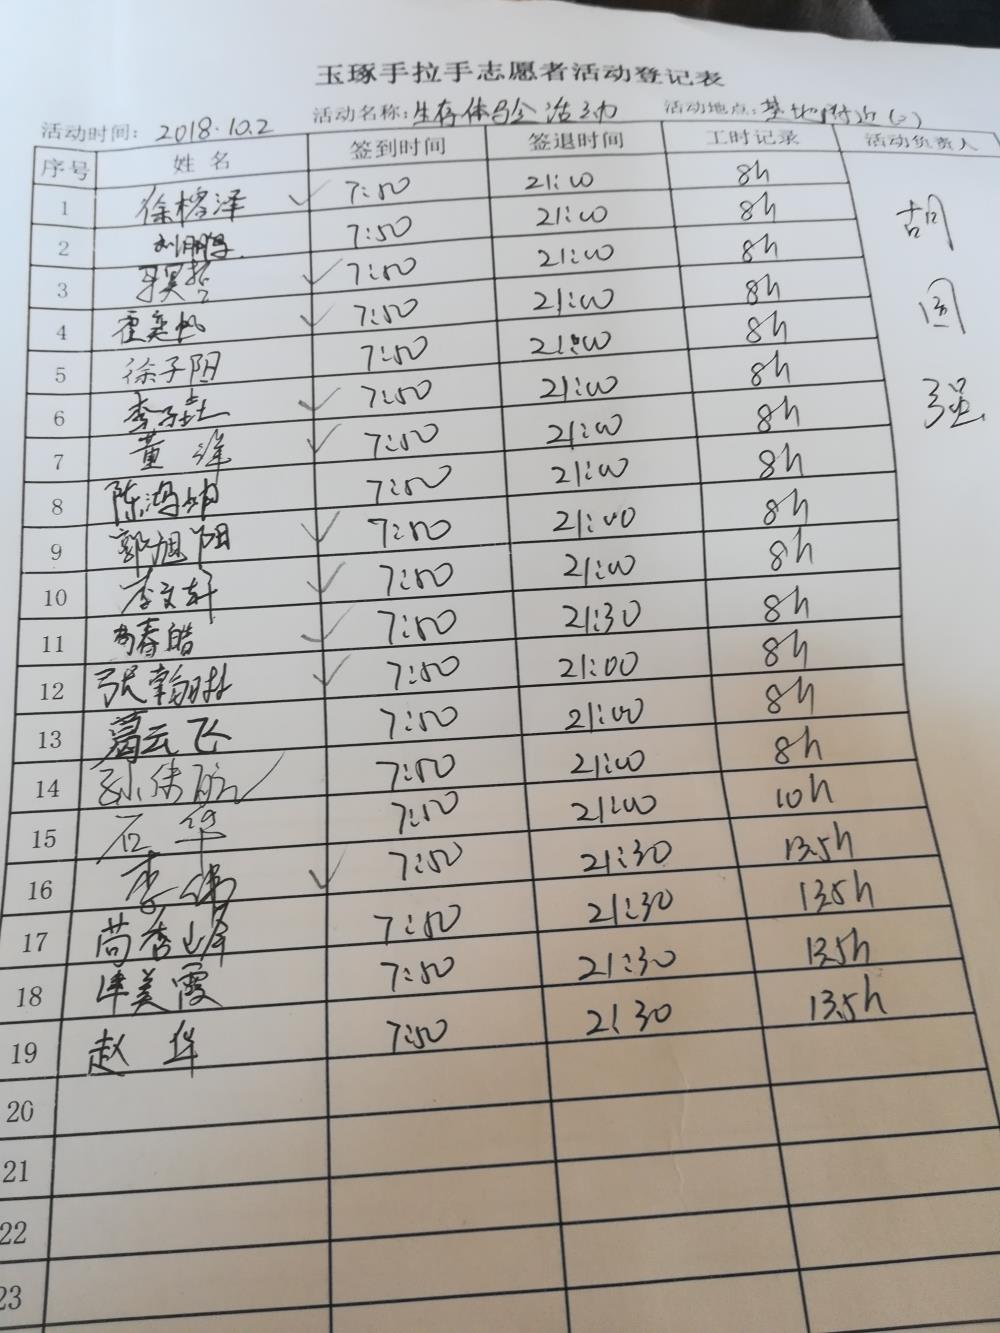 玉琢手拉手志愿者活动登记表
活动时间: 2018.10.2 活动名称: 生存体验活动 活动地点: 基地附近(2)
序号 姓名 签到时间 签退时间 工时记录 活动负责人
1 徐榕泽 ✓ 7:50 21:00 8h
2 7:50 21:00 8h
3 ✓ 7:50 21:00 8h
4 霍奕帆 ✓ 7:50 21:00 8h
5 徐子阳 7:50 21:00 8h
6 ✓ 7:50 21:00 8h
7 董 ✓ 7:50 21:00 8h
8 陈鸿炳 7:50 21:00 8h
9 郭旭阳 ✓ 7:50 21:00 8h
10 李文轩 ✓ 7:50 21:00 8h
11 春皓 ✓ 7:50 21:30 8h
12 张翰 ✓ 7:50 21:00 8h
13 葛云飞 7:50 21:00 8h
14 孙伟航 ✓ 7:50 21:00 8h
15 石华 7:50 21:00 10h
16 李 ✓ 7:50 21:30 13.5h
17 苘秀峰 7:50 21:30 13.5h
18 美霞 7:50 21:30 13.5h
19 赵华 7:50 21:30 13.5h
20
21
22
23
胡
国
强